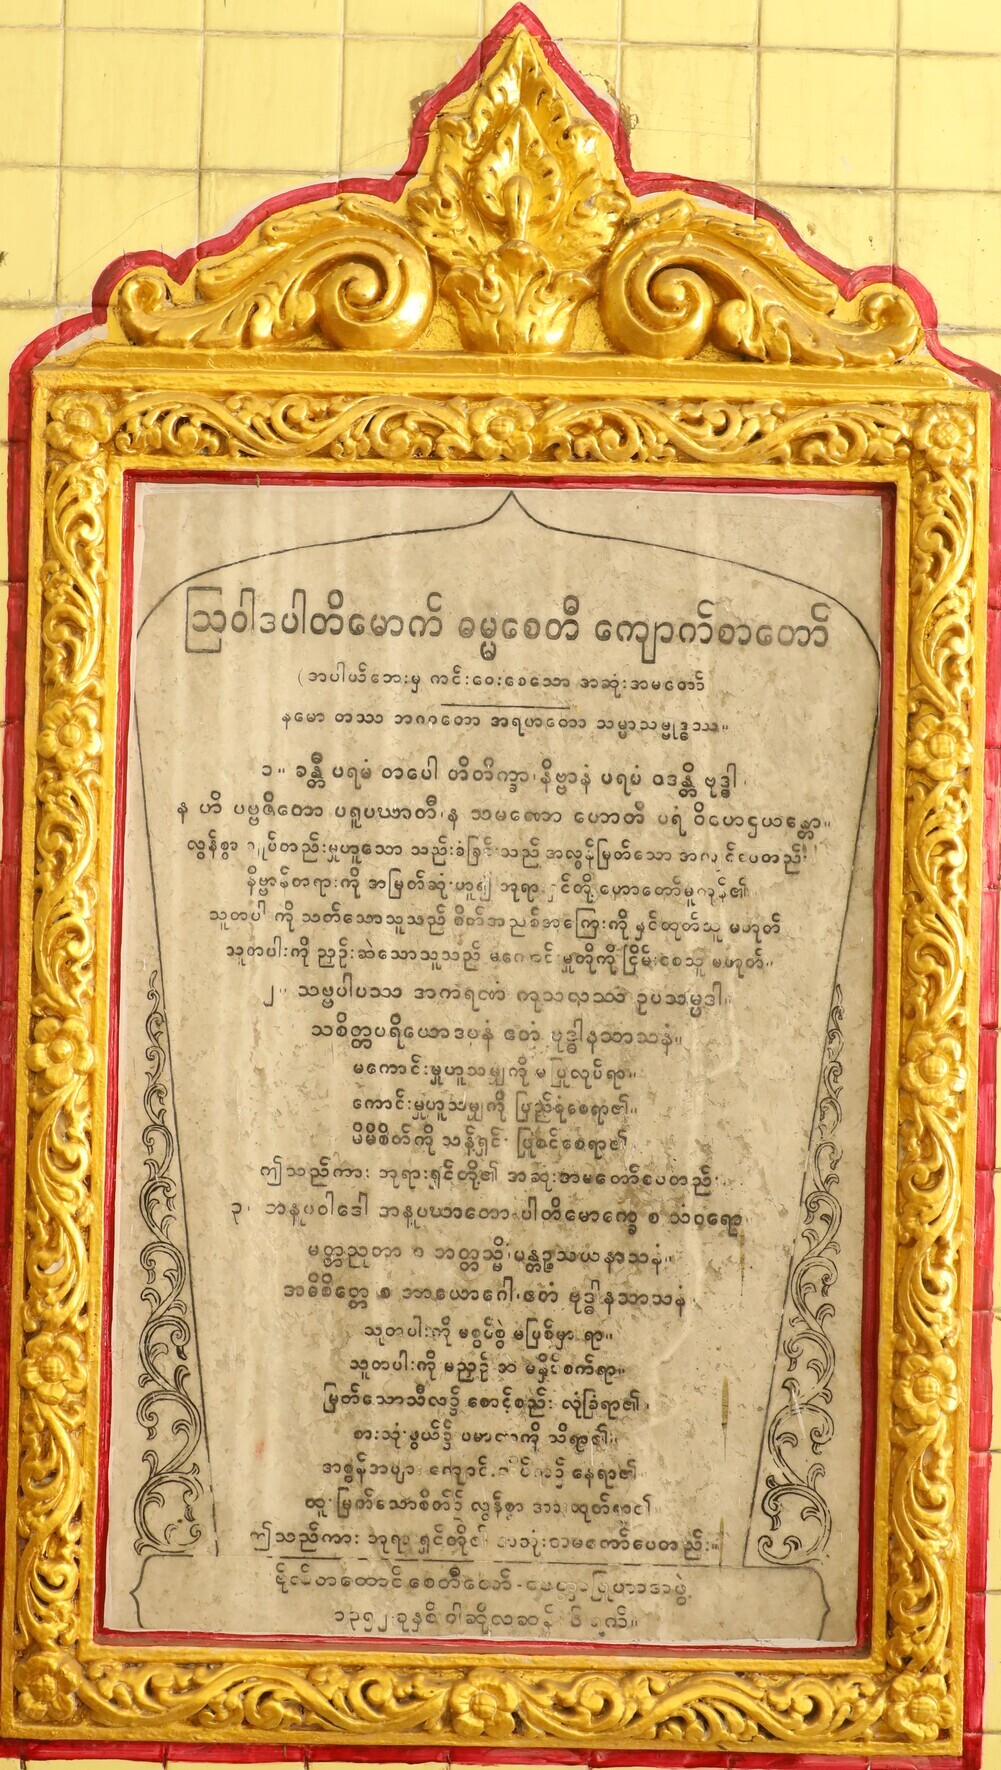 ဩဝါဒပါတိမောက် ဓမ္မစေတီ ကျောက်စာတော်
(အပါယ်ဘေးမှ ကင်းဝေးစေသော အဆုံးအမတော်)
နမော တဿ ဘဂဝတော အရဟတော သမ္မာသမ္ဗုဒ္ဓဿ။
၁။ ခန္တီ ပရမံ တပေါ တိတိက္ခာ၊ နိဗ္ဗာနံ ပရမံ ဝဒန္တိ ဗုဒ္ဓါ၊
န ဟိ ပဗ္ဗဇိတော ပရူပဃာတီ၊ န သမဏော ဟောတိ ပရံ ဝိဟေဌယန္တော။
လွန်စွာ ချုပ်တည်းမှုဟူသော သည်းခံခြင်းသည် အလွန်မြတ်သော အကျင့်ပေတည်း၊
နိဗ္ဗာန်တရားကို အမြတ်ဆုံးဟူ၍ ဘုရားရှင်တို့ ဟောတော်မူကုန်၏၊
သူတပါးကို သတ်သောသူသည် စိတ်အညစ်အကြေးကို နှင်ထုတ်သူ မဟုတ်
သူတပါးကို ညှဉ်းဆဲသောသူသည် မကောင်းမှုတို့ကို ငြိမ်းစေသူ မဟုတ်။
၂။ သဗ္ဗပါပဿ အာကရဏံ ကုသလဿ ဥပသမ္ပဒါ၊
သစိတ္တပရိယောဒပနံ ဧတံ ဗုဒ္ဓါနသာသနံ။
မကောင်းမှုဟူသမျှကို မပြုလုပ်ရာ။
ကောင်းမှုဟူသမျှကို ပြည့်စုံစေရာ၏။
မိမိစိတ်ကို သန့်ရှင်း ဖြူစင်စေရာ၏
ဤသည်ကား ဘုရားရှင်တို့၏ အဆုံးအမတော်ပေတည်း
၃၊ အနူပဝါဒေါ အနူပဃာတော ပါတိမောက္ခေ စ သံဝရော၊
မတ္တညုတာ စ ဘတ္တသ္မိံ၊ ပန္တဉ္စသယနာသနံ။
အဓိစိတ္တေ စ အာယောဂေါ၊ ဧတံ ဗုဒ္ဓါနသာသနံ
သူတပါးကို မစွပ်စွဲ မပြစ်မှားရာ။
သူတပါးကို မညှဉ်းဆဲ မနှိပ်စက်ရာ။
မြတ်သောသီလ၌ စောင့်စည်း လုံခြုံရာ၏၊
စားသုံးဖွယ်၌ ပမာဏကို သိရာ၏။
အစွန်အဖျား ကျောင်း နေရာ၏
ထူးမြတ်သောစိတ်၌ လွန်စွာ အားထုတ်ရာ၏၊
ဤသည်ကား ဘုရားရှင်တို့၏ အဆုံးအမတော်ပေတည်း။
ဗိုလ်တထောင် စေတီတော်
၁၃၅၂ ခုနှစ် ဝါဆိုလဆန်း ၆ ရက်။